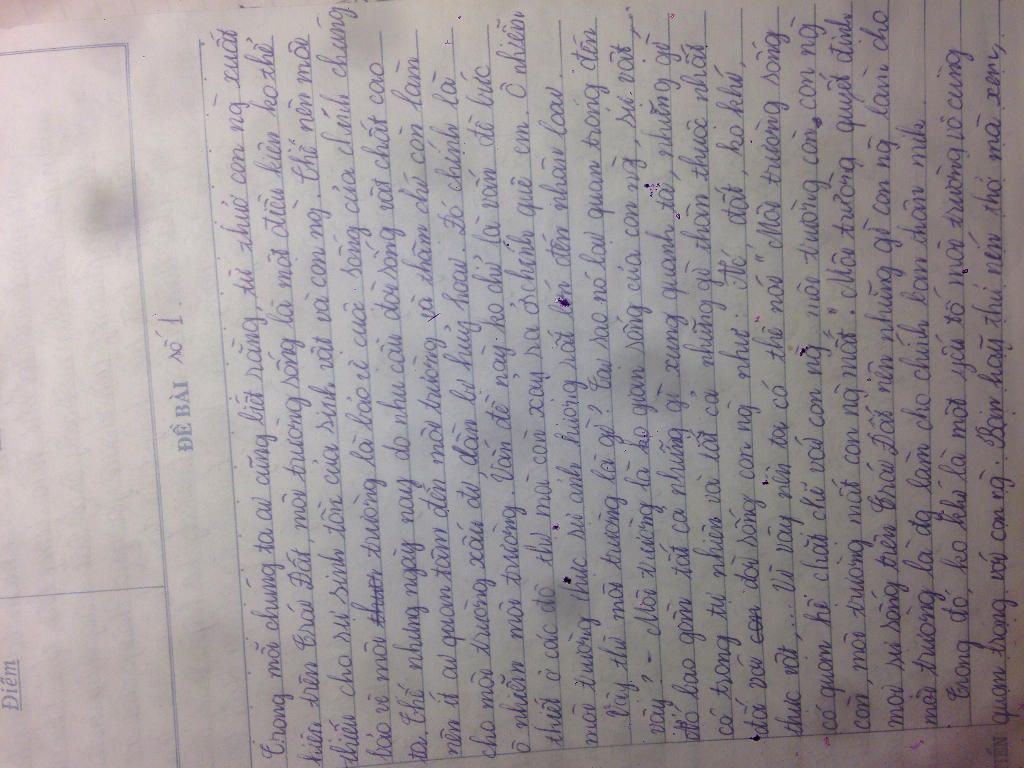 Điểm
ĐỀ BÀI số 1.
Trong mỗi chúng ta ai cũng biết rằng, từ thuở con ng xuất
hiện trên Trái Đất, môi trường sống là một điều kiện ko thể
thiếu cho sự sinh tồn của sinh vật và con ng. Thế nên mới
bảo vệ môi trường là bảo vệ cuộc sống của chính chúng
ta. Thế nhưng ngày nay do nhu cầu đời sống rất chất cao
nên ít ai quan tâm đến môi trường, và thậm chí còn làm
cho môi trường xấu đi dần bị hủy hoại. Đó chính là
ô nhiễm môi trường. Vấn đề này ko chỉ là vấn đề bức
thiết ở các đô thị mà còn xảy ra ở chính quê em. Ô nhiễm
môi trường thực sự ảnh hưởng rất lớn đến nhân loại.
Vậy thì môi trường là gì? Tại sao nó lại quan trọng đến
vậy? - Môi trường là ko gian sống của con ng, sự vật,
đó bao gồm tất cả những gì xung quanh ta, những gì
có trong tự nhiên và tất cả những gì thân thuộc nhất
đối với đời sống con ng như: đất, ko khí,
thực vật,... Vì vậy nên ta có thể nói "Môi trường sống
có quan hệ chặt chẽ với con ng, môi trường còn, con ng
còn, môi trường mất con ng mất". Môi trường quyết định
mọi sự sống trên Trái Đất nên những gì con ng làm cho
môi trường là đg làm cho chính bản thân mk.
Trong đó, ko khí là một yếu tố môi trường vô cùng
quan trọng với con ng. Bạn hãy thử nín thở mà xem,